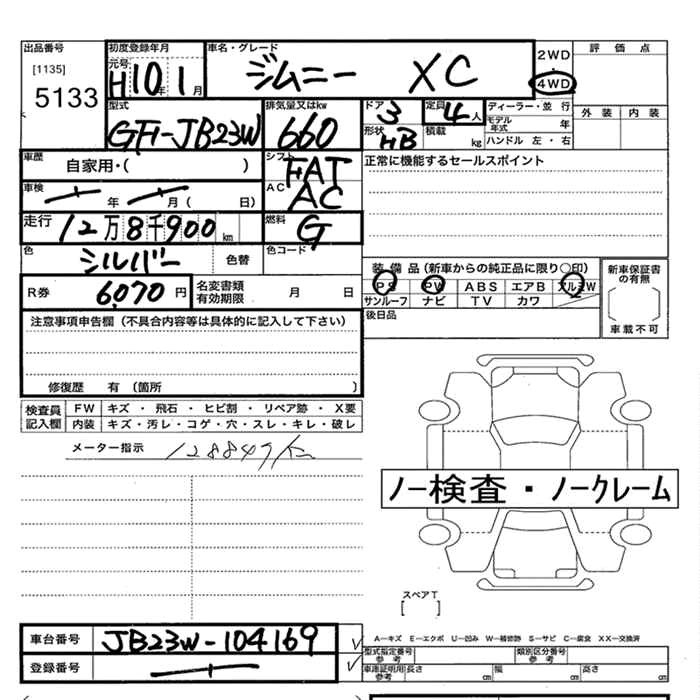 出品番号 初度登録年月 車名・グレード 2WD 評価点
[1135] 元号 ・
5133 H10年 1月 ジムニー XC 4WD
型式 排気量又はkw ドア 3 定員 4人 ディーラー・並行 外装 内装
GF-JB23W 660 形状 HB 積載 kg モデル年式 年
ハンドル 左・右
車歴 自家用・( ) シフト FAT 正常に機能するセールスポイント
車検 年 月( 日) AC AC
走行 12万8千900km 燃料 G
色 シルバー 色替 色コード
装備品(新車からの純正品に限り○印) 新車保証書の有無
R券 6,070円 名変書類有効期限 月 日 PS PW ABS エアB アルミW
サンルーフ ナビ TV カワ
注意事項申告欄(不具合内容等は具体的に記入して下さい) 後日品 車載不可
修復歴 有(箇所 )
検査員記入欄 FW キズ・飛石・ヒビ割・リペア跡・X要
内装 キズ・汚レ・コゲ・穴・スレ・キレ・破レ
メーター指示 128849km
ノー検査・ノークレーム
スペアT
[ ]
車台番号 JB23W-104169 A—キズ E—エクボ U—凹み W—補修跡 S—サビ C—腐食 XX—交換済
登録番号 型式指定番号 参考 類別区分番号 参考
車庫証明用参考 長さ cm 幅 cm 高さ cm